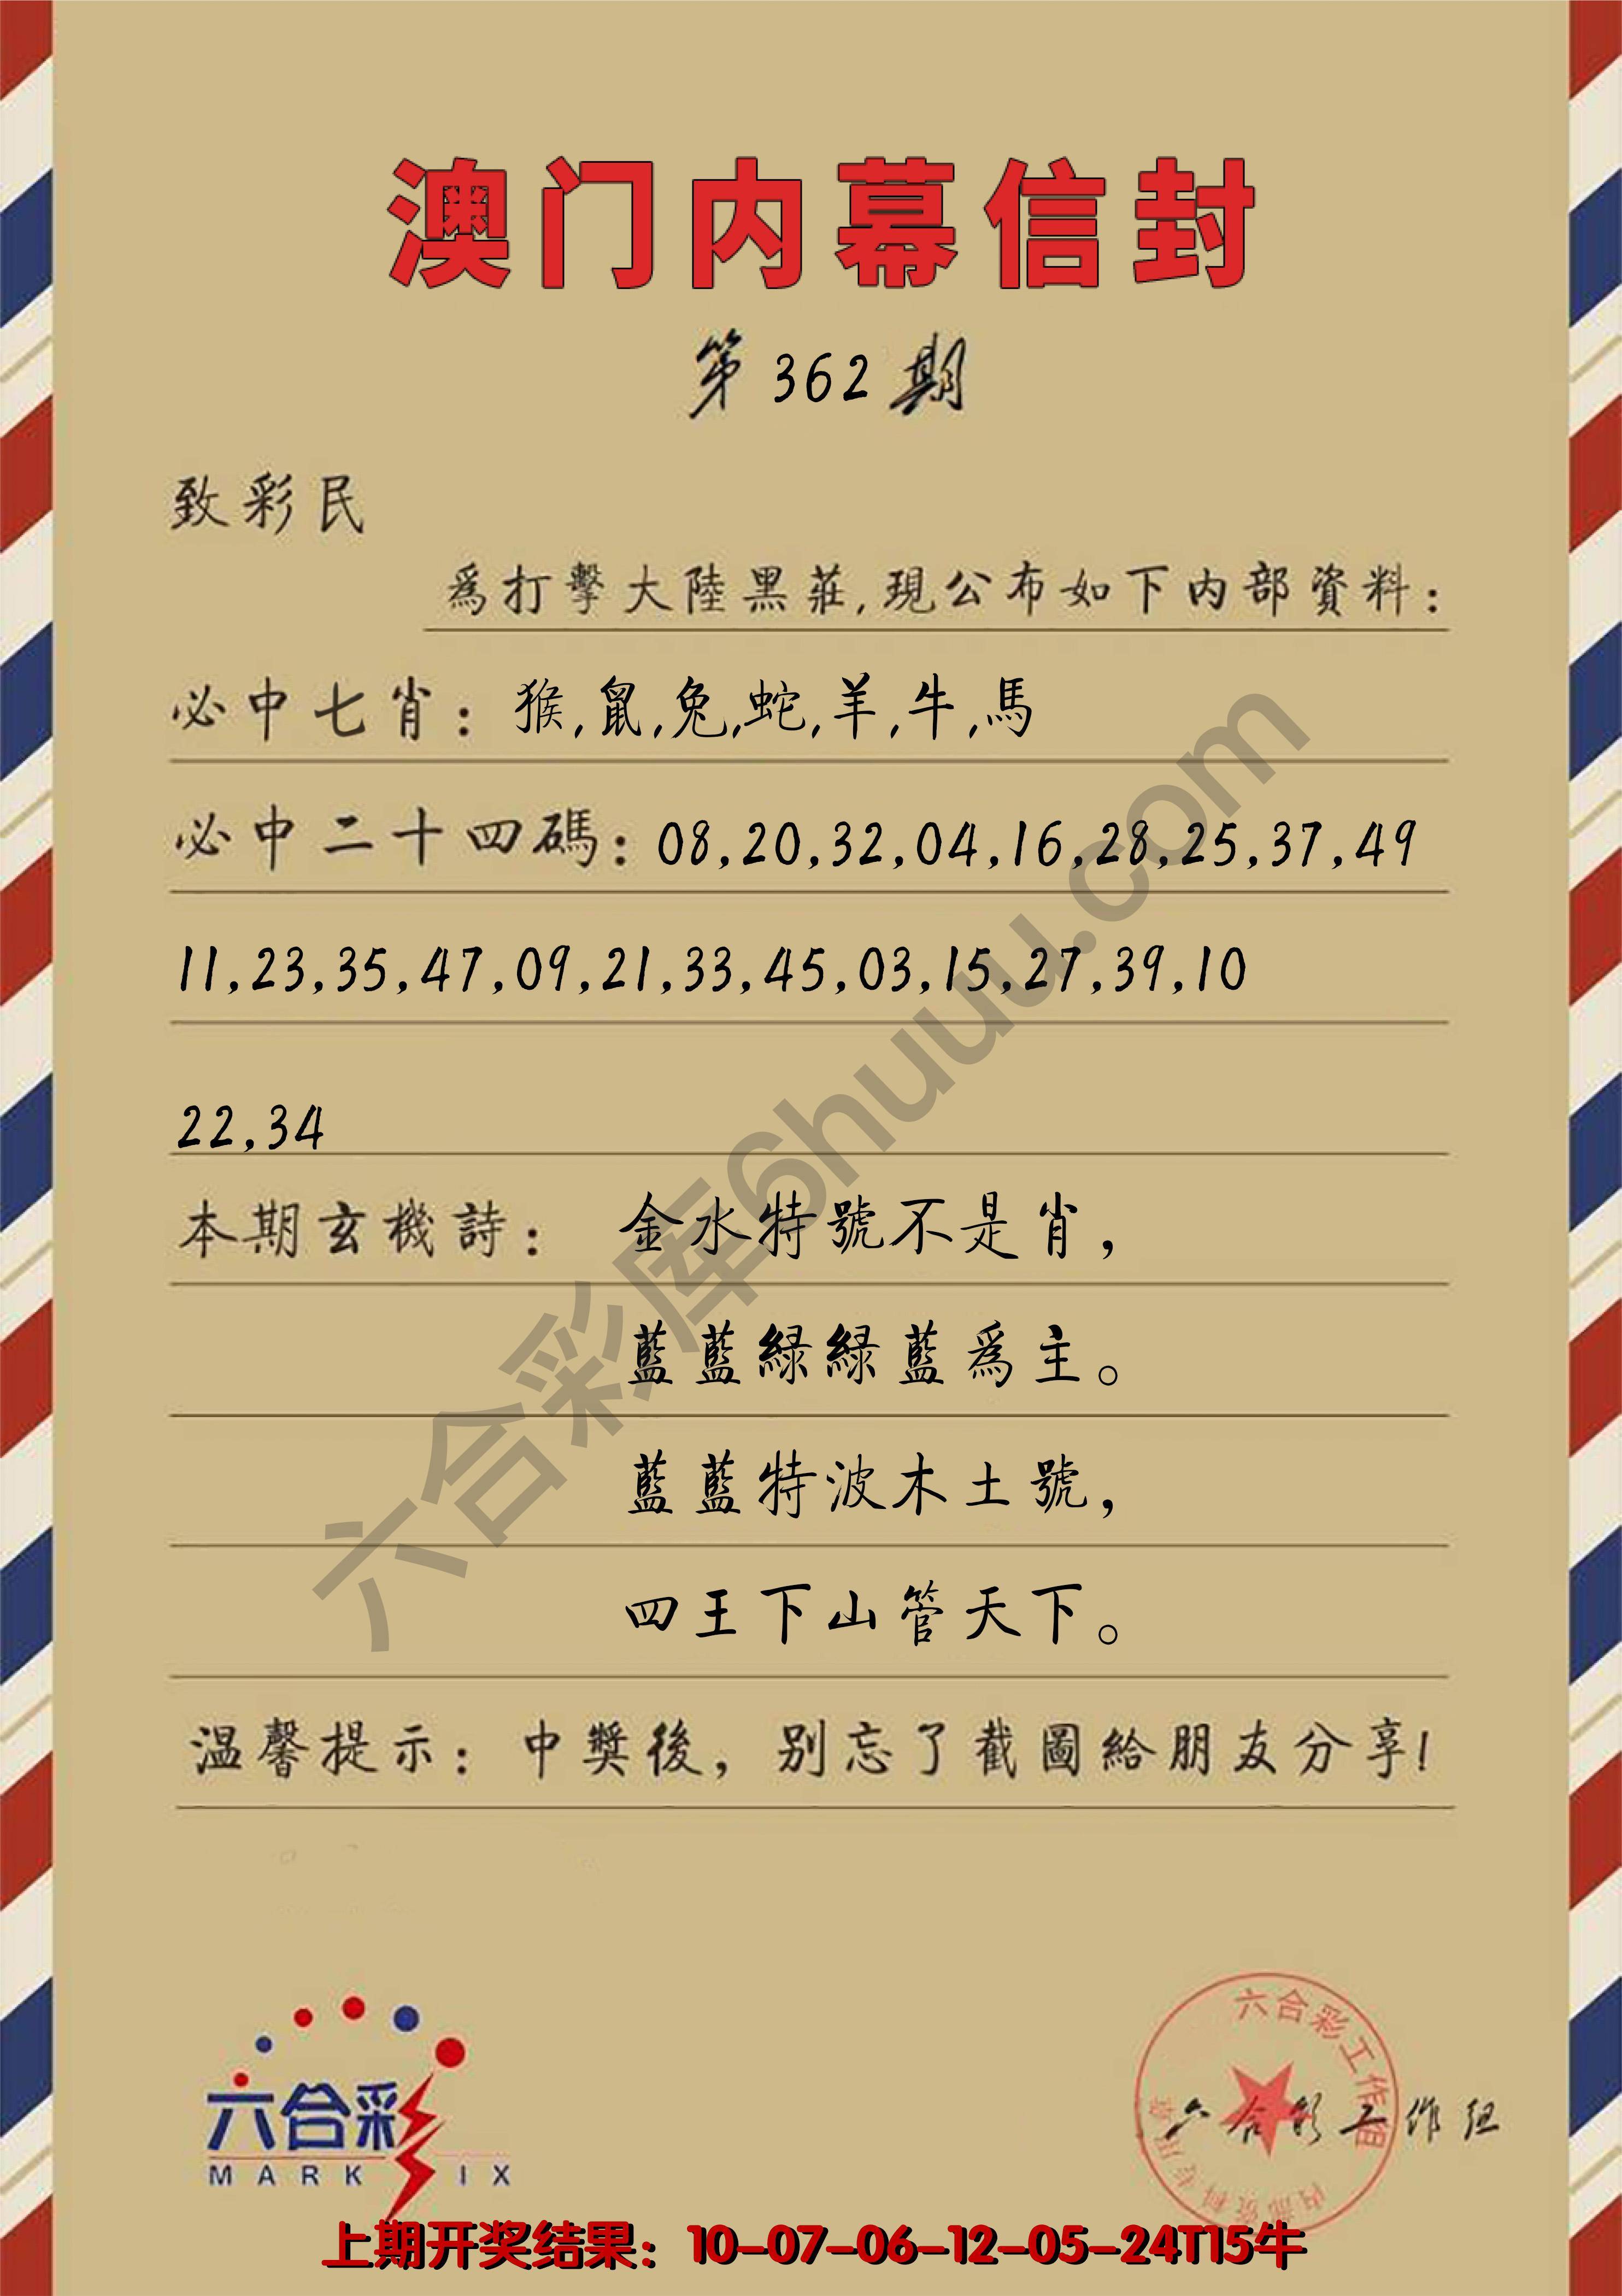 澳门内幕信封
第362期
致彩民
爲打擊大陸黑莊,現公布如下内部資料:
必中七肖: 猴,鼠,兔,蛇,羊,牛,馬
必中二十四碼: 08,20,32,04,16,28,25,37,49
11,23,35,47,09,21,33,45,03,15,27,39,10
22,34
本期玄機詩: 金水特號不是肖,
藍藍緑緑藍爲主。
藍藍特波木土號,
四王下山管天下。
温馨提示: 中獎後,别忘了截圖給朋友分享!
六合彩库6huuu.com
六合彩
MARK IX
六合彩工作组
内部资料专用章
六合彩工作组
上期开奖结果: 10-07-06-12-05-24T15牛